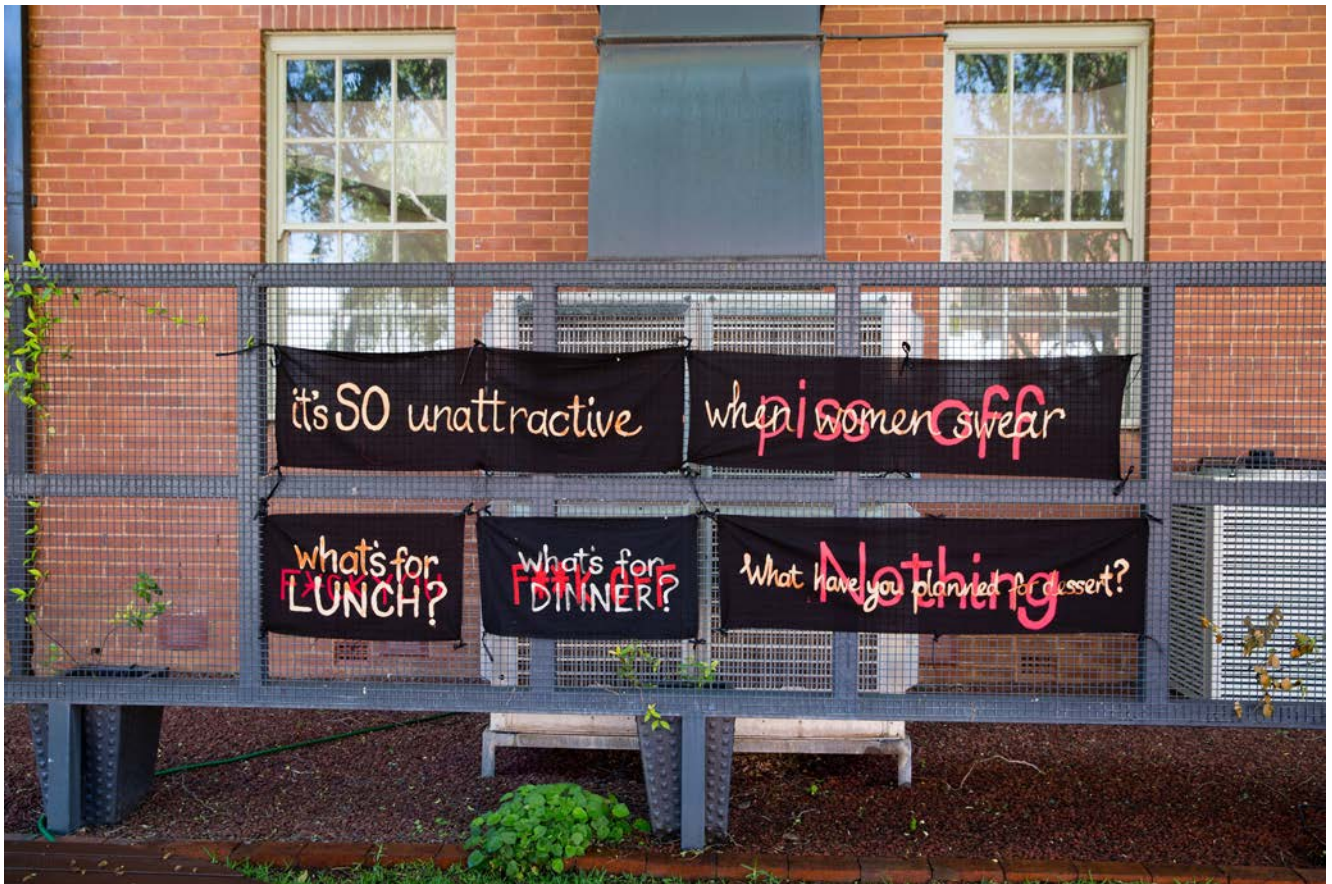 it's SO unattractive
when women swear
piss off
what's for
LUNCH?
F*CK YOU
what's for
DINNER?
F**K OFF
What have you planned for dessert?
Nothing